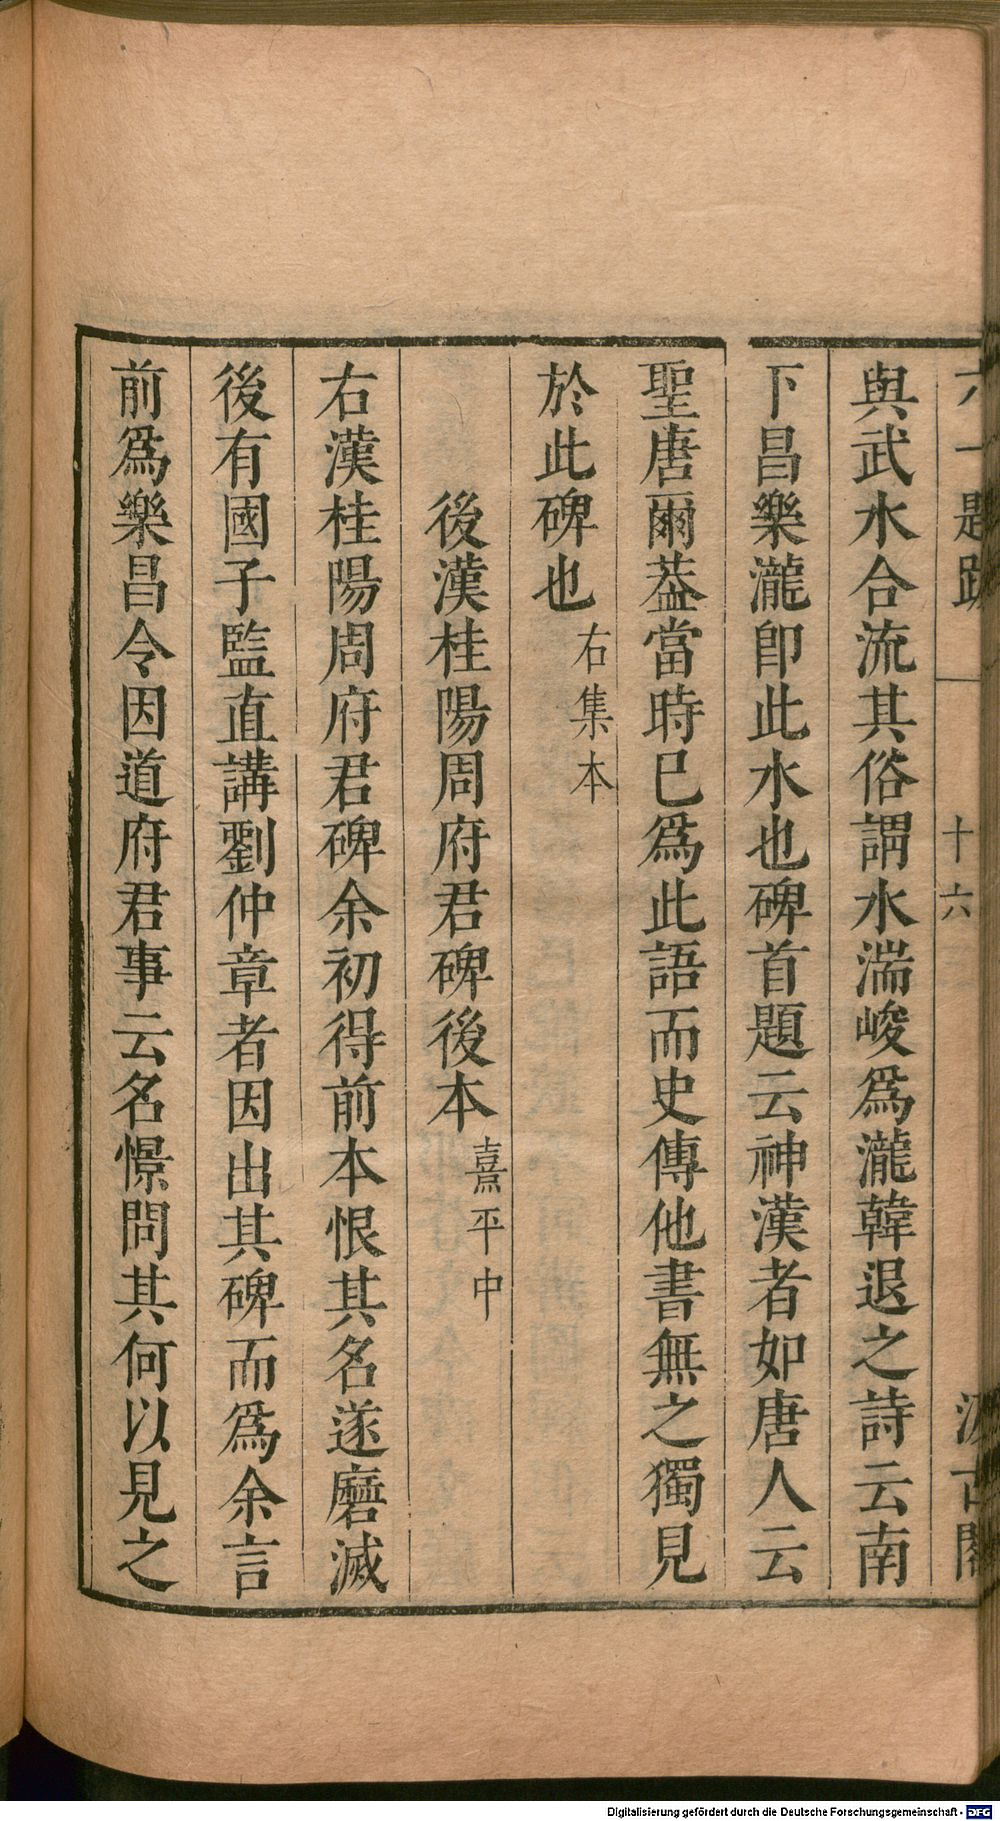 六一題跋
十六
汲古閣
與武水合流其俗謂水湍峻爲瀧韓退之詩云南
下昌樂瀧卽此水也碑首題云神漢者如唐人云
聖唐爾葢當時已爲此語而史傳他書無之獨見
於此碑也右集本
後漢桂陽周府君碑後本熹平中
右漢桂陽周府君碑余初得前本恨其名遂磨滅
後有國子監直講劉仲章者因出其碑而爲余言
前爲樂昌令因道府君事云名憬問其何以見之
Digitalisierung gefördert durch die Deutsche Forschungsgemeinschaft - DFG